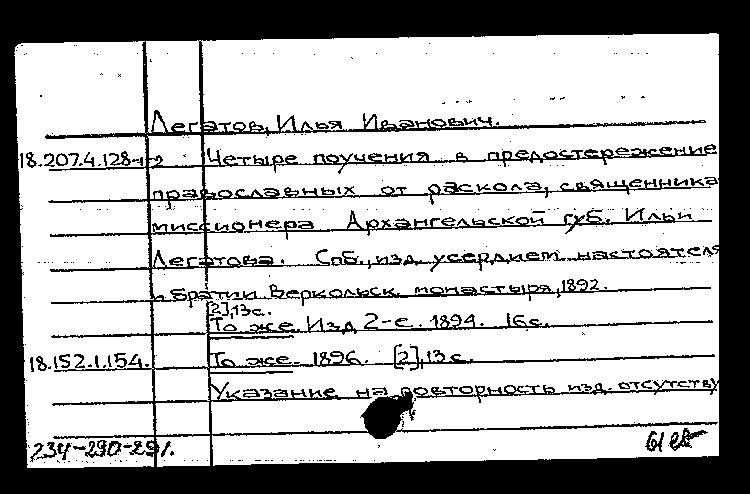 Легатов, Илья Иванович.
18.207.4.128-1-2 Четыре поучения в предостережение
православных от раскола, священника
миссионера Архангельской губ. Ильи
Легатова. Спб., изд. усердием настоятеля
и братии Веркольск. монастыря, 1892.
[2], 13 с.
То же. Изд. 2-е. 1894. 16 с.
18.152.1.154. То же. 1896. [2], 13 с.
Указание на повторность изд. отсутству
234-290-291.